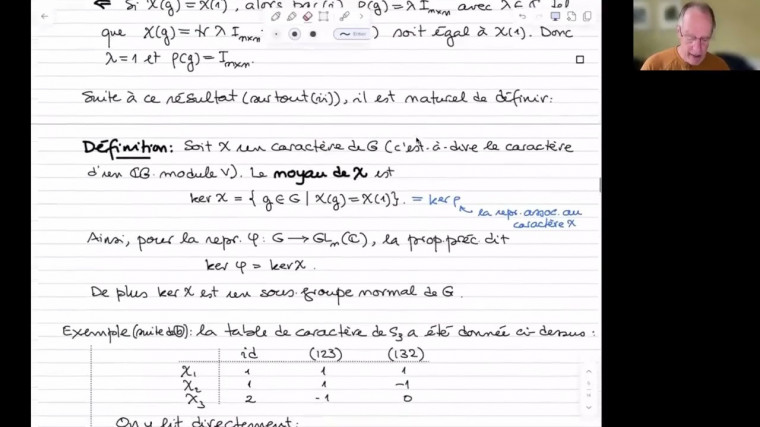 ⇐ Si χ(g) = χ(1), alors par (i) ρ(g) = λ I_{m×m} avec λ ∈ ℂ
que χ(g) = tr λ I_{m×m} soit égal à χ(1). Donc
λ = 1 et ρ(g) = I_{m×m}.
Suite à ce résultat (surtout (ii)), il est naturel de définir:
Définition: Soit χ un caractère de G (c'est-à-dire le caractère
d'un ℂG-module V). Le noyau de χ est
ker χ = { g ∈ G | χ(g) = χ(1)}. = ker ρ
la repr. assoc. au
caractère χ
Ainsi, pour la repr. φ: G → GL_m(ℂ), la prop. préc dit
ker φ = ker χ.
De plus ker χ est un sous-groupe normal de G.
Exemple (suite de (b)): la table de caractère de S_3 a été donnée ci-dessus:
id (123) (132)
χ_1 1 1 1
χ_2 1 1 -1
χ_3 2 -1 0
On y lit directement: